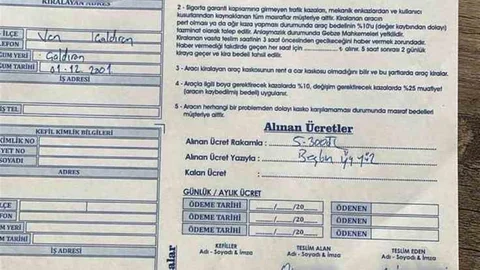 KİRALAYAN ADRES
İLÇE Van Çaldıran
ELEFON
ĞUM YERİ : Çaldıran
ĞUM TARİHİ 01.12.2001
İŞ ADRESİ
İŞ TEL
KEFİL KİMLİK BİLGİLERİ
KİMLİK NO
YET NO
SOYADI
ADRES
İLÇE
EFON
M YERİ
UM TARİHİ
İŞ ADRESİ
2 - Sigorta garanti kapsamına girmeyen trafik kazaları, mekanik enkazlardan ve kullanıcı
kusurlarından kaynaklanan tüm masraflar müşteriye aittir. Kiralanan aracın
pert olması ya da ağır kaza yapması durumunda araç bedelinin %10'u (değer kaybından dolayı)
tazminat olarak talep edilir. Anlaşmazlık durumunda Gebze Mahkemeleri yetkilidir.
Kiralanan vasıta teslim saatinden 3 saat öncesinden gecikeceğini haber vermek zorundadır.
Haber vermediği takdirde geçen her saat için ......... t alınır. 5 saat sonrası 2 günlük
kiraya geçer ve kira bedeli tahsil edilir.
3 - Aracı kiralayan araç kaskosunun rent a car kaskosu olmadığını bilir ve bu şartlarda araç kiralar.
4 - Araçla ilgili boya gerektirecek kazalarda % 10, değişim gerektirecek kazalarda %25 muafiyet
(aracın kaybedilmiş bedeli) uygulanır.
5 - Aracın herhangi bir problemden dolayı kasko karşılamaması durumunda masraf bedelleri
müşteriye aittir.
Alınan Ücretler
Alınan Ücret Rakamla : 5.300TL
Alınan Ücret Yazıyla : Beşbin üçyüz
Kalan Ücret :
GÜNLÜK / AYLIK ÜCRET
ÖDEME TARİHİ __/__/20__ ÖDENEN
ÖDEME TARİHİ __/__/20__ ÖDENEN
KEFİLLER TESLİM ALAN TESLİM EDEN
Adı - Soyadı & İmza Adı - Soyadı & İmza Adı - Soyadı & İmza
alar